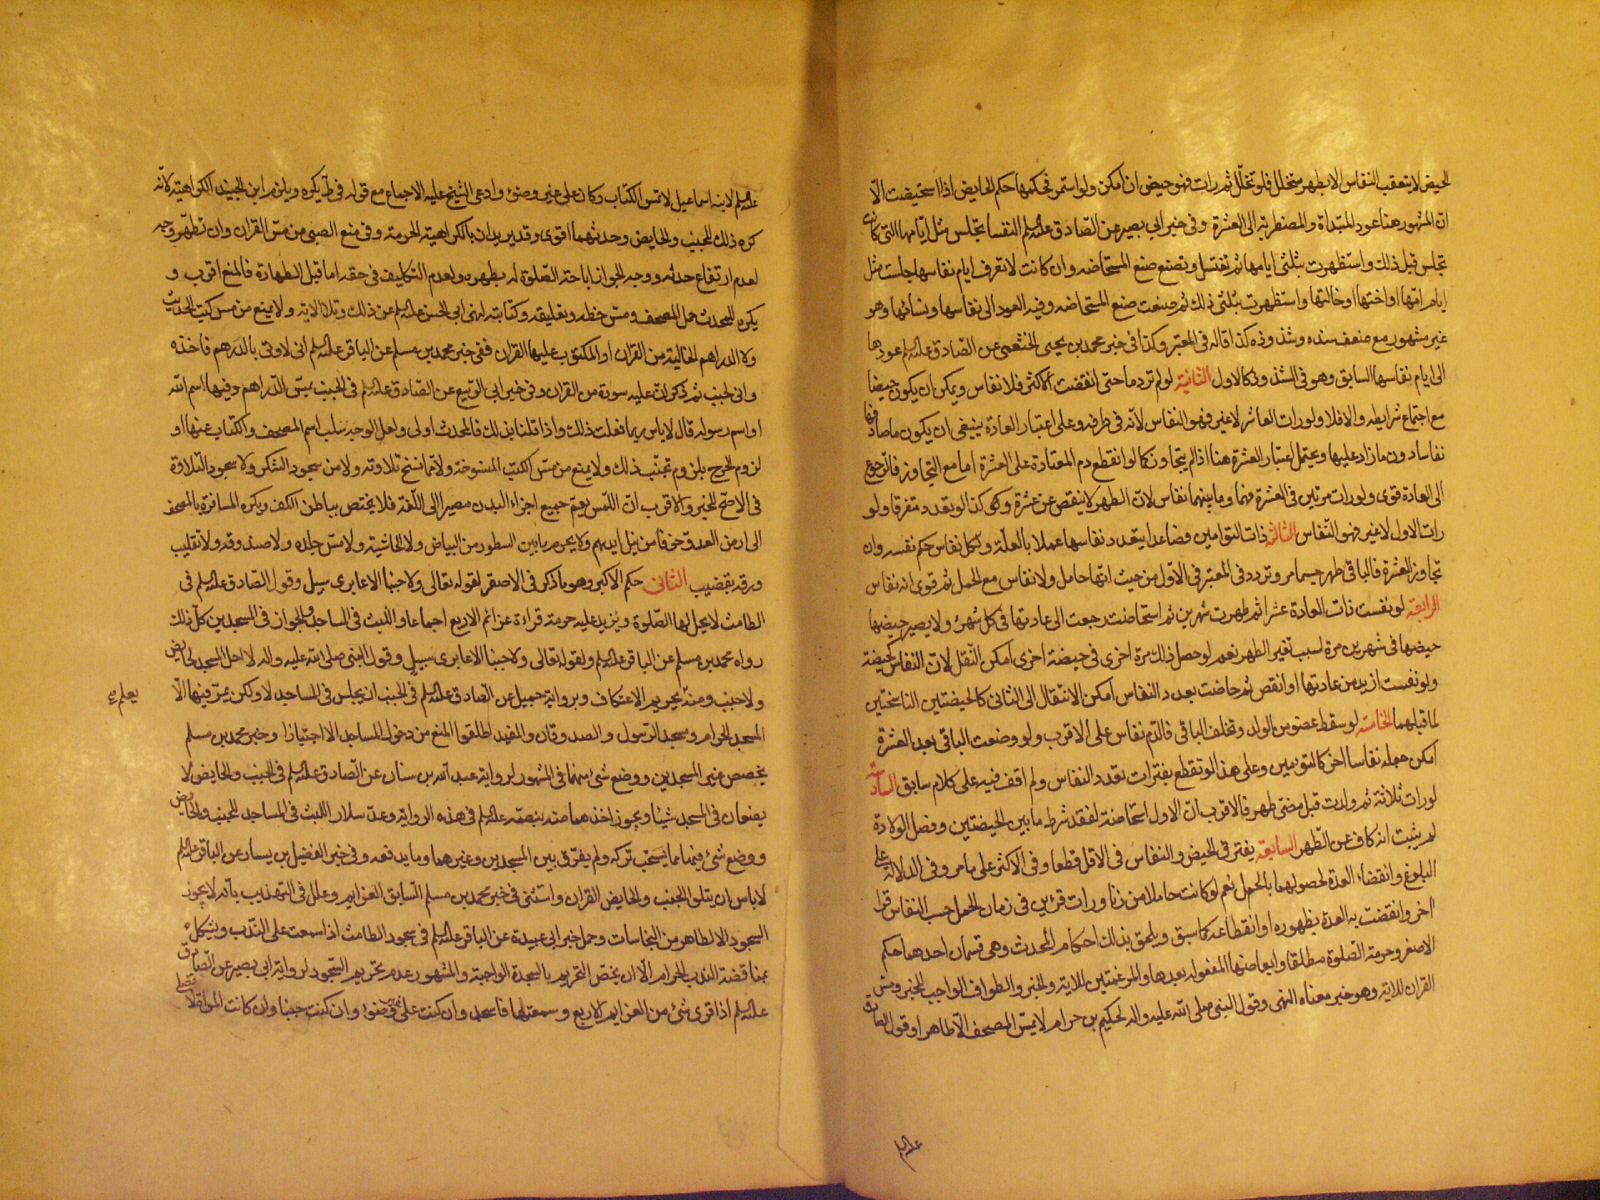 الحيض لا يتعقب النفاس الا بطهر متخلل فلو تخلّل ثم رات فهو حيض ان امكن ولو استمر فحكمها حكم الحايض اذا استحيضت الّا
ان المشهور هنا عود المبتداة والمضطربة الى العشرة وفى خبر ابى بصير عن الصادق علیه‌السلم النفسا تجلس مثل ايامها التى كانت
تجلس قبل ذلك واستظهرت بثلثى ايامها ثم تغتسل وتصنع صنع المستحاضه وان كانت لا تعرف ايام نفاسها جلست مثل
ايام امها او اختها او خالتها واستظهرت بثلثى ذلك ثم صنعت صنع المستحاضه وفيه العود الى نفاسها ونسائها وهو
غير مشهور مع ضعف سنده وشذوذه كذا قاله فى المعتبر وكذا فى خبر محمد بن يحيى الخثعمى عن الصادق علیه‌السلم عودها
الى ايام نفاسها السابق وهو فى الشذوذ كالاول الثانية لو لم تر دما حتى انقضت الاكثر فلا نفاس ويمكن ان يكون حيضا
مع اجتماع شرايطه والا فلا ولو رات العاشر لا غير فهو النفاس لانّه فى طرفه وعلى اعتبار العادة ينبغى ان يكون ما صادفها
نفاسا دون ما زاد عليها ويحتمل اعتبار العشرة هنا اذا لم يتجاوز كما لو انقطع دم المعتادة على العشرة اما مع التجاوز فالرجوع
الى العادة قوى ولو رات مرتين فى العشرة فهما وما بينهما نفاس لان الطهر لا ينقص عن عشرة وكذا لو تعدد متفرقا ولو
رات الاول لا غير فهو النّفاس الثالثة ذات التوامين فصاعدا يتعدد نفاسها عملا بالعلة ولكل نفاس حكم نفسه وان
تجاوز العشرة فالباقى طهر حسبما مر وتردد فى المعتبر فى الاول من حيث انها حامل ولا نفاس مع الحمل ثم قوى انه نفاس
الرابعة لو نفست ذات العادة عشرا ثم طهرت شهرين ثم استحاضت رجعت الى عادتها فى كل شهر ولا يصير حيضها
حيضها فى شهرين مرة لسبب تغير الطهر نعم لو حصل ذلك مرة اخرى فى حيضة اخرى امكن النّقل لان النفاس كحيضة
ولو نفست ازيد من عادتها او انقص ثم حاضت بعدد النفاس امكن الانتقال الى الثانى كالحيضتين الناسختين
لما قبلهما الخامسة لو سقط عضو من الولد وتخلف الباقى فالدّم نفاس على الاقرب ولو وضعت الباقى بعد العشرة
امكن جعله نفاسا اخر كالتوامين وعلى هذا لو تقطع بفترات تعدد النفاس ولم اقف فيه على كلام سابق السادسة
لو رات ثلاثة ثم ولدت قبل مضى طهر فالاقرب ان الاول استحاضة لفقد شرط ما بين الحيضتين وفصل الولادة
لم يثبت انه كاف عن الطهر السابعة يفترق الحيض والنفاس فى الاقل قطعا وفى الاكثر على ما مر وفى الدلالة على
البلوغ وانقضاء العدة لحصولهما بالحمل نعم لو كانت حاملا من زنا ورات قرئين فى زمان الحمل حسب النفاس قرا
اخر وانقضت به العدة بظهوره او انقطاعه كما سبق ويلحق بذلك احكام المحدث وهى قسمان احدهما حكم
الاصغر وحرمة الصلوة مطلقا وابعاضها المفعولة بعدها والمرغمتين للاية والخبر والطواف الواجب للخبر ومسّ
القران للاية وهو خبر معناه النهى وقول النبى صلى الله عليه واله لحكيم بن حزام لا يمسّ المصحف الّا طاهرا وقول الصادق
علیه‌السلم
علیه‌السلم لابنه اسماعيل لا تمس الكتاب وكان على غير وضوء وادعى الشيخ عليه الاجماع مع قوله فى ط يكره ويلزم ابن الجنيد الكراهيته لانّه
كره ذلك للجنب والحايض وحدثهما اقوى وقد يريدان بالكراهية الحرمة وفى منع الصبى من مسّ القران وان تطهّر وجه
لعدم ارتفاع حدثه ووجه الجواز اباحة الصّلوة له بطهره ولعدم التكليف فى حقه اما قبل الطهارة فالمنع اقرب و
يكره للمحدث حمل المصحف ومسّ خطه وتعليقه وكتابته لنهى ابى الحسن علیه‌السلم عن ذلك وتلا الاية ولا يمنع من مس كتب الحديث
ولا الدراهم الخالية من القران او المكتوب عليها القران ففى خبر محمد بن مسلم عن الباقر علیه‌السلم انى لاوتى بالدرهم فاخذه
وانى لجنب ثم ذكر انّ عليه سورة من القران وفى خبر ابى الربيع عن الصادق علیه‌السلم فى الجنب يمسّ الدّراهم وفيها اسم الله
او اسم رسوله قال لا باس ربما فعلت ذلك واذا قلنا بذلك فالمحدث اولى ولعل الوجه سلب اسم المصحف والكتاب عنها او
لزوم الحرج بلزوم تجنّب ذلك ولا يمنع من مسّ الكتب المنسوخة ولا ما نسخ تلاوته ولا من سجود الشكر ولا سجود التّلاوة
فى الاصحّ للخبر والاقرب انّ اللّمس يعمّ جميع اجزاء البدن مصيرا الى اللّغة فلا يختص بباطن الكف ويكره المسافرة بالمصحف
الى ارض العدو خوفا من نيل ايديهم ولا يحرم ما بين السطور من البياض ولا الحاشية ولا مسّ جلده ولا صندوقه ولا تقليب
ورقه بقضيب الثانى حكم الاكبر وهو ما ذكر فى الاصغر لقوله تعالى ولا جنبا الا عابرى سبيل وقول الصادق علیه‌السلم فى
الطامث لا يحل لها الصّلوة ويزيد عليه حرمة قراءة عزائم الاربع اجماعا واللبث فى المساجد والجواز فى المسجدين كل ذلك
رواه محمد بن مسلم عن الباقر علیه‌السلم ولقوله تعالى ولا جنبا الا عابرى سبيل وقول النبى صلى الله عليه واله لا احل المسجد لحايض
ولا جنب ومنه تحريم الاعتكاف وبرواية جميل عن الصّادق علیه‌السلم فى الجنب ان يجلس فى المساجد لا ولكن يمرّ فيها الّا
المسجد الحرام ومسجد الرّسول والصدوقان والمفيد اطلقوا المنع من دخول المساجد الا اجتيازا وخبر محمد بن مسلم
يخصص غير المسجدين ووضع شئ فيهما فى المشهور لرواية عبد الله بن سنان عن الصّادق علیه‌السلم فى الجنب والحايض لا
يضعان فى المسجد شيئا ويجوز اخذهما منه بنصّه علیه‌السلم فى هذه الرواية وعدّ سلار اللبث فى المساجد للجنب والحايض
ووضع شئ فيها مما يستحب تركه ولم يفرّق بين المسجدين وغيرهما وما يدفعه وفى خبر الفضيل بن يسار عن الباقر علیه‌السلم
لا باس ان يتلو الجنب والحايض القران واستثنى فى خبر محمد بن مسلم السّابق العزايم وعلل فى التهذيب بانّه لا يجوز
السجود الا لطاهر من النجاسات وحمل خبر ابى عبيدة عن الباقر علیه‌السلم فى سجود الطامث اذا سمعت على النّدب ويشكل
بمناقضة الندب الحرام الّا ان يختصّ التحريم بالسجدة الواجبة والمشهور عدم تحريم السّجود لرواية ابى بصير عن الصّادق
علیه‌السلم اذا قرئ شئ من العزايم الاربع وسمعتها فاسجد وان كنت على غير وضوء وان كنت جنبا وان كانت المراة لا